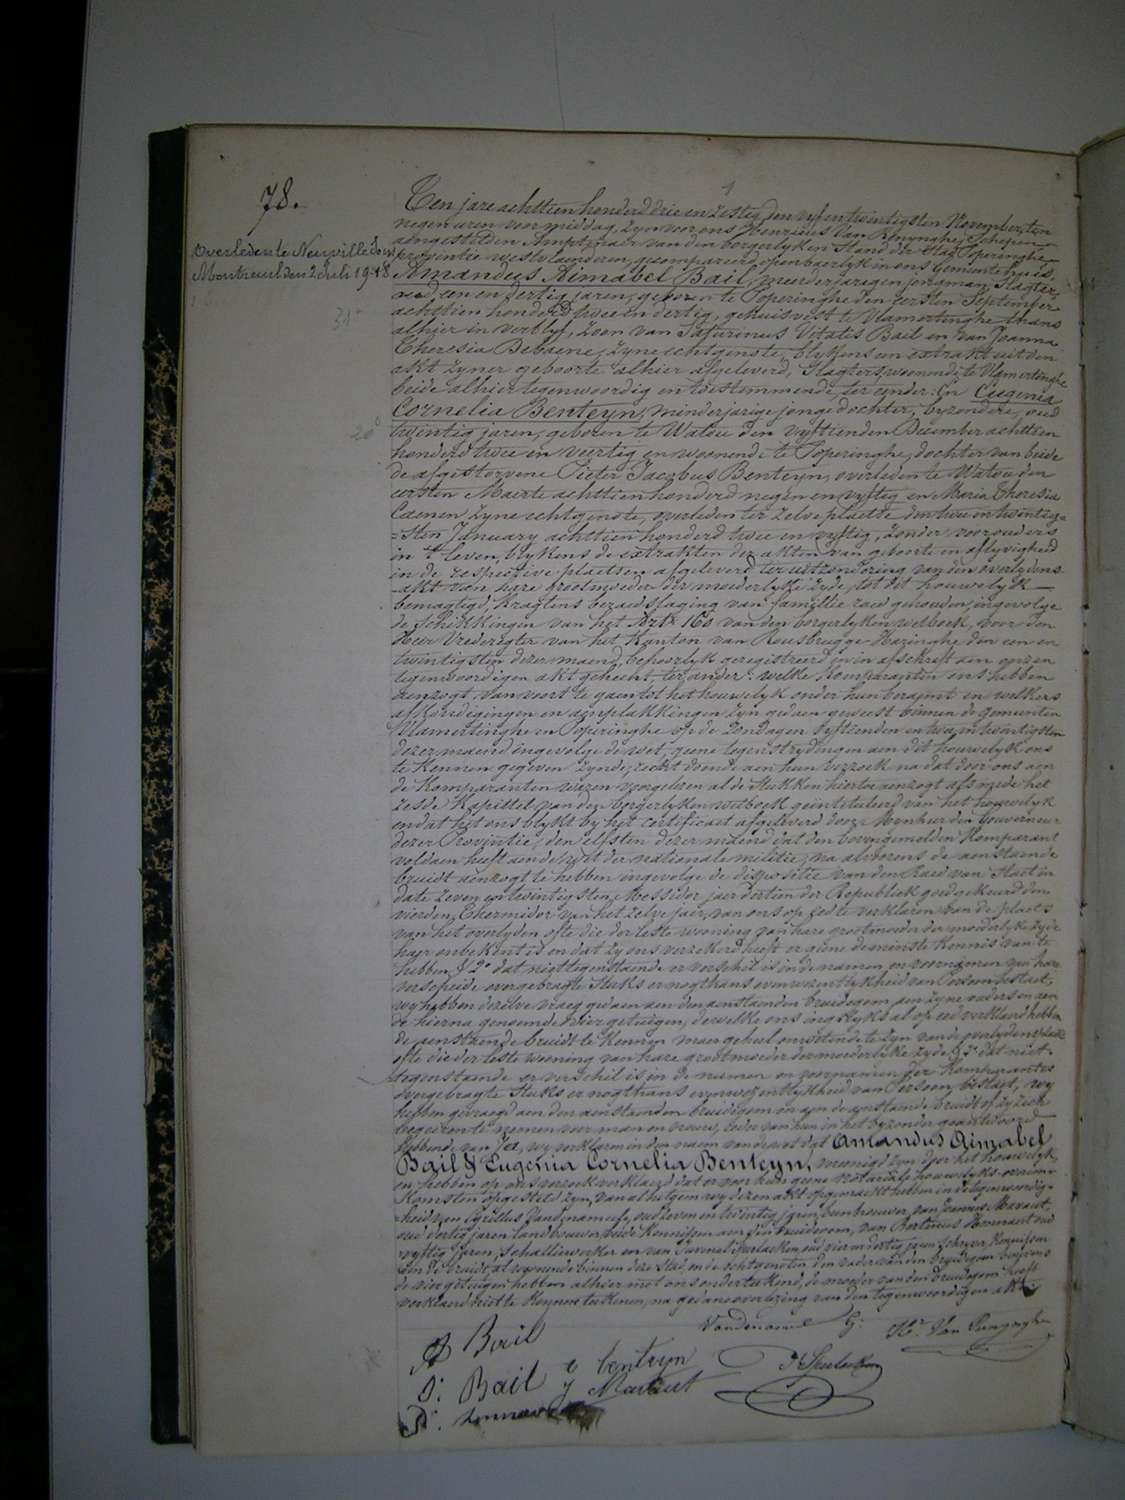 78.
Overleden te Neuville sous
Montreuil den 2 Juli 1918
Ten jare achttien honderd drie en zestig, den vyf en twintigsten November, ten
negen uren voormiddag, zyn voor ons Henricus Van Renynghe, Schepen
aengestelden Amptenaer van den borgerlyken Stand der Stad Poperinghe
provintie westvlaenderen, gecompareerd openbaerlyk in ons Gemeente huis,
Amandus Aimabel Bail, meerderjarigen jongman, Slagter
oud een en dertig jaren, geboren te Poperinghe den eersten September
achttien honderd twee en dertig, gehuisvest te Vlamertinghe thans
31
alhier in verblyf, zoon van Saturinus Vitalis Bail en van Joanna
Theresia Debaene, zyne echtgenote, blykens een extrakt uit den
akt zyner geboorte alhier afgeleverd, Slagters, woonende te Vlamertinghe
beide alhier tegenwoordig en toestemmende, ter eender: En Eugenia
Cornelia Benteyn, minderjarige jonge dochter, byzondere, oud
20
twintig jaren, geboren te Watou den vyftienden December achttien
honderd twee en veertig en woonende te Poperinghe, dochter van beide
de afgestorvene Pieter Jacobus Benteyn, overleden te Watou den
eersten Maerte achttien honderd negen en vyftig en Maria Theresia
Coenen zyne echtgenote, overleden ter zelve plaetse den twee en twintig=
=sten January achttien honderd twee en vyftig, zonder voorouders
in 't leven, blykens de extrakten der akten van geboorte en aflyvigheid
in de respective plaetsen afgeleverd ter uitzondering van den overlydens
akt van hare grootmoeder der moederlyke zyde, tot dit houwelyk
bemagtigd, kragtens beraedslaging van famillie raed gehouden, ingevolge
de schikkingen van het Artk 160 van den borgerlyken wetboek, voor den
Heer Vrederegter van het Kanton van Rousbrugge-Haringhe den een en
twintigsten dezer maend, behoorlyk geregistreerd en in afschrift aen onzen
tegenwoordigen akt gehecht, ter ander: welke komparanten ons hebben
aenzogt, van voort te gaen tot het houwelyk onder hun beraemt en welkers
afkondigingen en aenplakkingen zyn gedaen geweest binnen de gemeenten
Vlamertinghe en Poperinghe op de zondagen vyftienden en twee en twintigsten
dezer maend ingevolge de wet, geene tegenstrydingen aen dit houwelyk ons
te kennen gegeven zynde, recht doende aen hun verzoek na dat door ons aen
de komparanten waren voorgelezen al de stukken hierboven aenzogt alsmede het
zesde Kapittel van den borgerlyken wetboek geintituleerd van het houwelyk
en dat het ons blykt by het certificaet afgeleverd door Mynheer den Gouverneur
dezer Provintie, den elfsten dezer maend dat den bovengemelden komparant
voldaen heeft aen de wet der nationale militie, na alvorens de aenstaende
bruidt aenzogt te hebben ingevolge de dispositie van den Raed van Staet in
date zeven en twintigsten Messidor jaer dertien der Republiek goedgekeurd den
vierden Thermidor van het zelve jaer, van ons op eed te verklaren van de plaets
van het overlyden ofte die der leste wooning van hare grootmoeder der moederlyke zyde
haer onbekent is en dat zy ons verzekerd heeft er geene de minste kennis van te
hebben, § 2° dat niettegenstaende er verschil is in de namen en voornamen van hare
verscheide overgebragte stuks er nogthans evenwezentlykheid van Persoon bestaet,
wy hebben dezelve vraeg gedaen aen den aenstaenden bruidegom, aen zyne ouders en aen
de hierna genoemde vier getuigen, dewelke ons insgelyks al op eed verklaerd hebben
de aenstaende bruidt te kennen maer geheel onwetende te zyn van de overlydens plaets
ofte die der leste wooning van hare grootmoeder der moederlyke zyde § 3° dat niet-
tegenstaende er verschil is in de namen en voornamen der komparanten
overgebragte stuks er nogthans evenwezentlykheid van Persoon bestaet, wy
hebben gevraegd aen den aenstaenden bruidegom en aen de aenstaende bruidt of zy zich
begeeren te nemen voor man en vrouw, ieder van hun in het byzonder geantwoord
hebbende van Ja, wy verklaren in den naem van de wet dat Amandus Aimabel
Bail & Eugenia Cornelia Benteyn, vereenigd zyn door het houwelyk
en hebben op ons verzoek verklaerd dat er voor hun geene notariale houwelyks-overeen-
komsten opgesteld zyn, van al hetgeen wy dezen akt opgemaekt hebben in de tegenwoordig=
=heid van Cyrillus Vandenameele, oud zeven en twintig jaren, beenhouwer, van Joannes Maraut,
oud dertig jaren landbouwer, beide kennissen aen den bruidegom, van Bertinus Hennaert oud
vyftig jaren, schaliewerker en van Purmel Spelackem, oud vier en dertig jaren schryver, kennissen
aen de bruidt, al woonende binnen deze Stad, en de echtgenoten, den vader van den bruidegom benevens
de vier getuigen hebben alhier met ons onderteekend, de moeder van den bruidegom heeft
verklaerd niet te kunnen teekenen, na gedane overlezing van den tegenwoordigen akt.
A Bail
Vandename C:
Hri Van Renynghe
S: Bail
e benteyn
J Maraut